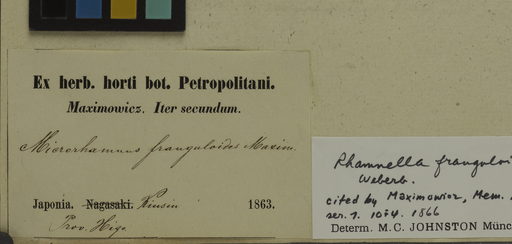 Ex herb. horti bot. Petropolitani.
Maximowicz. Iter secundum.
Microrhamnus franguloides Maxim.
Japonia. Nagasaki. Kiusiu 1863.
Prov. Higo
Rhamnella franguloi
Weberb.
cited by Maximowicz, Mem.
ser. 7. 10:4. 1866
Determ. M.C. JOHNSTON Münc